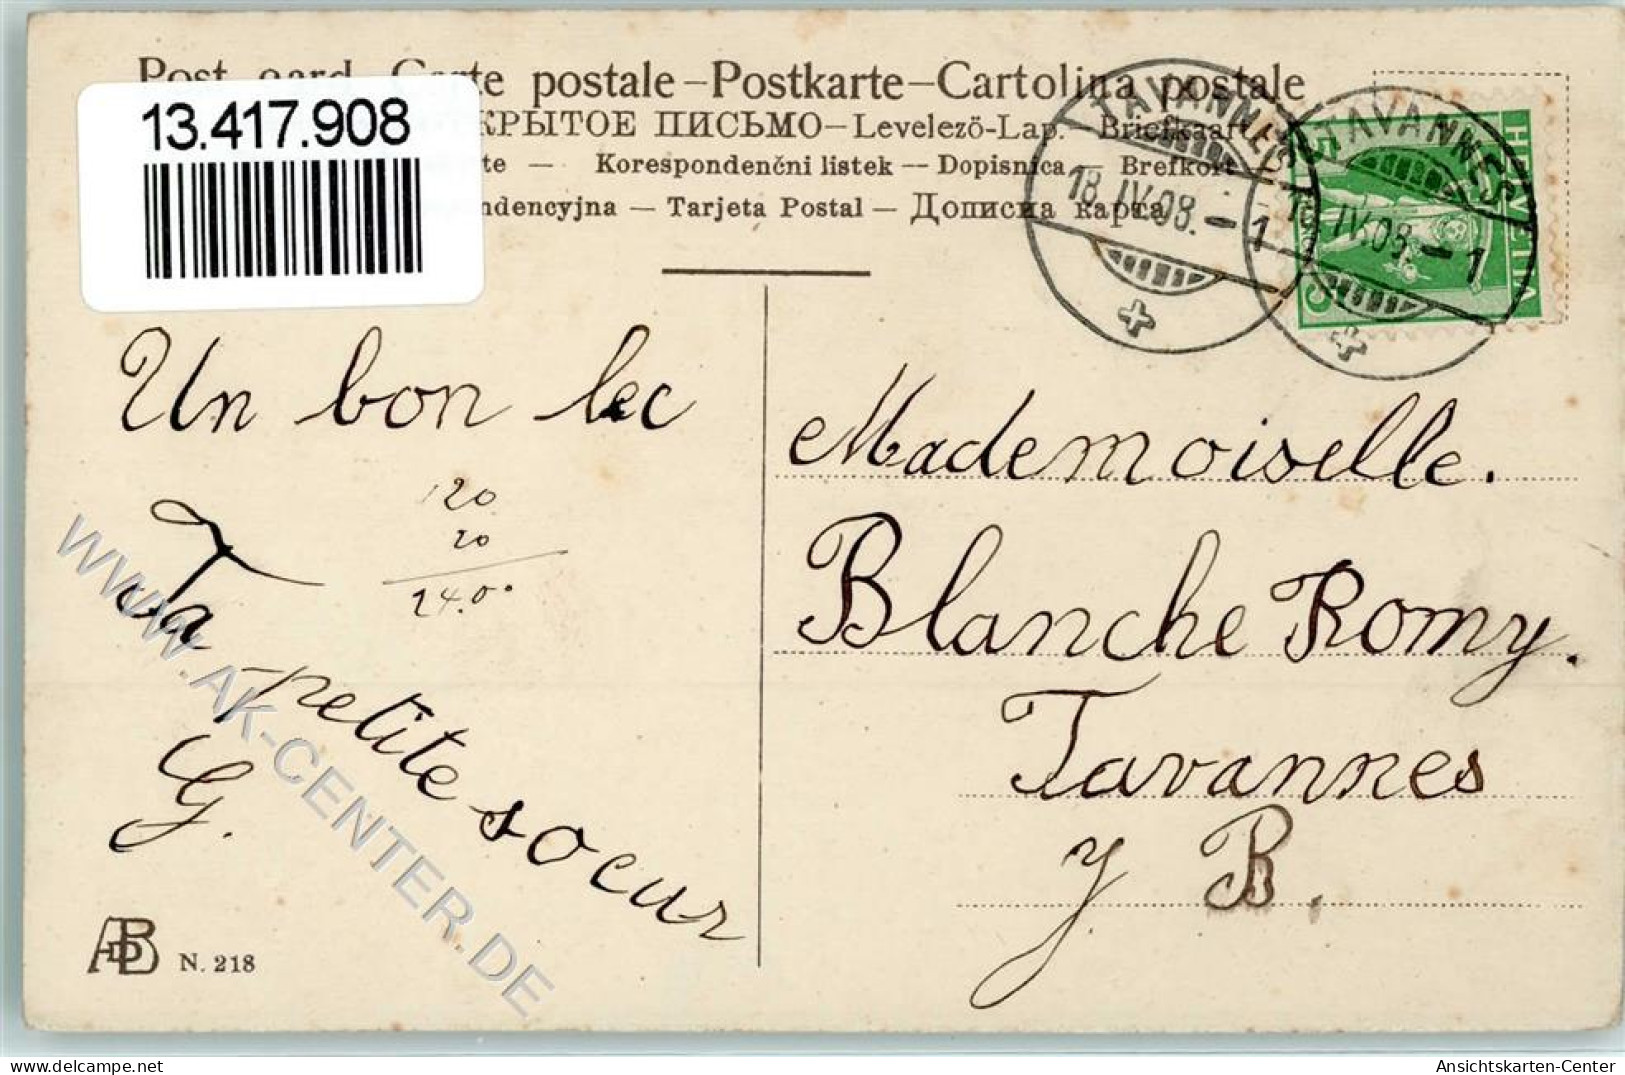 Post card Carte postale – Postkarte – Cartolina postale
13.417.908
КРЫТОЕ ПИСЬМО – Levelező-Lap. – Briefkaart
te — Korespondenční listek -- Dopisnica — Brefkort
ndencyjna — Tarjeta Postal — Дописна карта
TAVANNES
18.IV.08.–1
TAVANNES
18.IV.08.–1
HELVETIA
5
Un bon bec
120
20
24.00
Ta petite soeur
G.
Mademoiselle.
Blanche Romy.
Tavannes
J B.
ADB N. 218
WWW.AK-CENTER.DE
https://www.delcampe.net
Ansichtskarten-Center